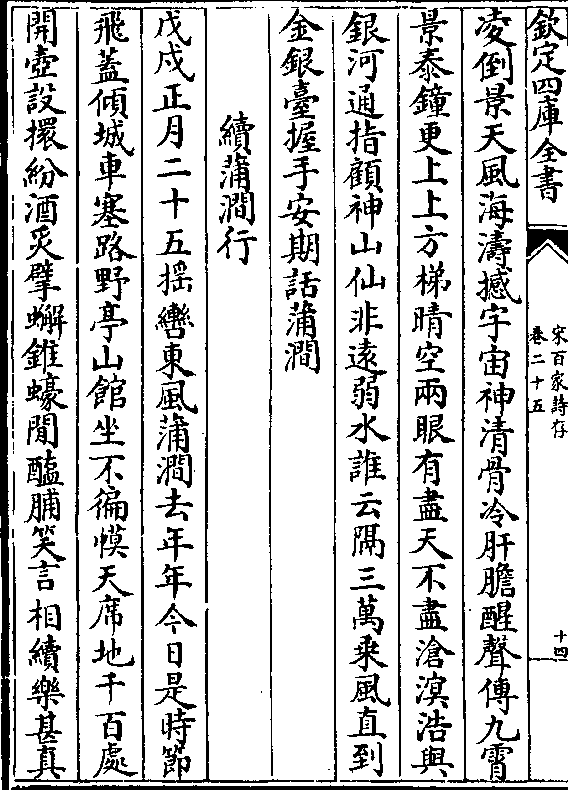 欽定四庫全書
宋百家詩存
卷二十五
十四
凌倒景天風海濤撼宇宙神清骨冷肝膽醒聲傳九霄
景泰鐘更上上方梯晴空兩眼有盡天不盡滄溟浩與
銀河通指顧神山仙非遠弱水誰云隔三萬乗風直到
金銀臺握手安期話蒲澗
續蒲澗行
戊戍正月二十五揺轡東風蒲澗去年年今日是時節
飛蓋傾城車塞路野亭山館坐不徧幙天席地千百處
開壺設擐紛酒炙擘蠏錐蠔間醢脯笑言相續樂甚真